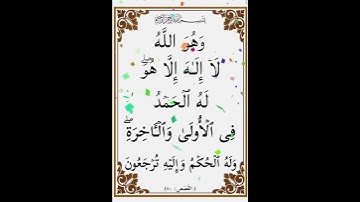 بِسْمِ اللَّهِ الرَّحْمَٰنِ الرَّحِيمِ
وَهُوَ اللَّهُ
لَآ إِلَـٰهَ إِلَّا هُوَ ۖ
لَهُ ٱلْحَمْدُ
فِى ٱلْأُولَىٰ وَٱلْـَٔاخِرَةِ ۖ
وَلَهُ ٱلْحُكْمُ وَإِلَيْهِ تُرْجَعُونَ
( القصص: ٧٠ )